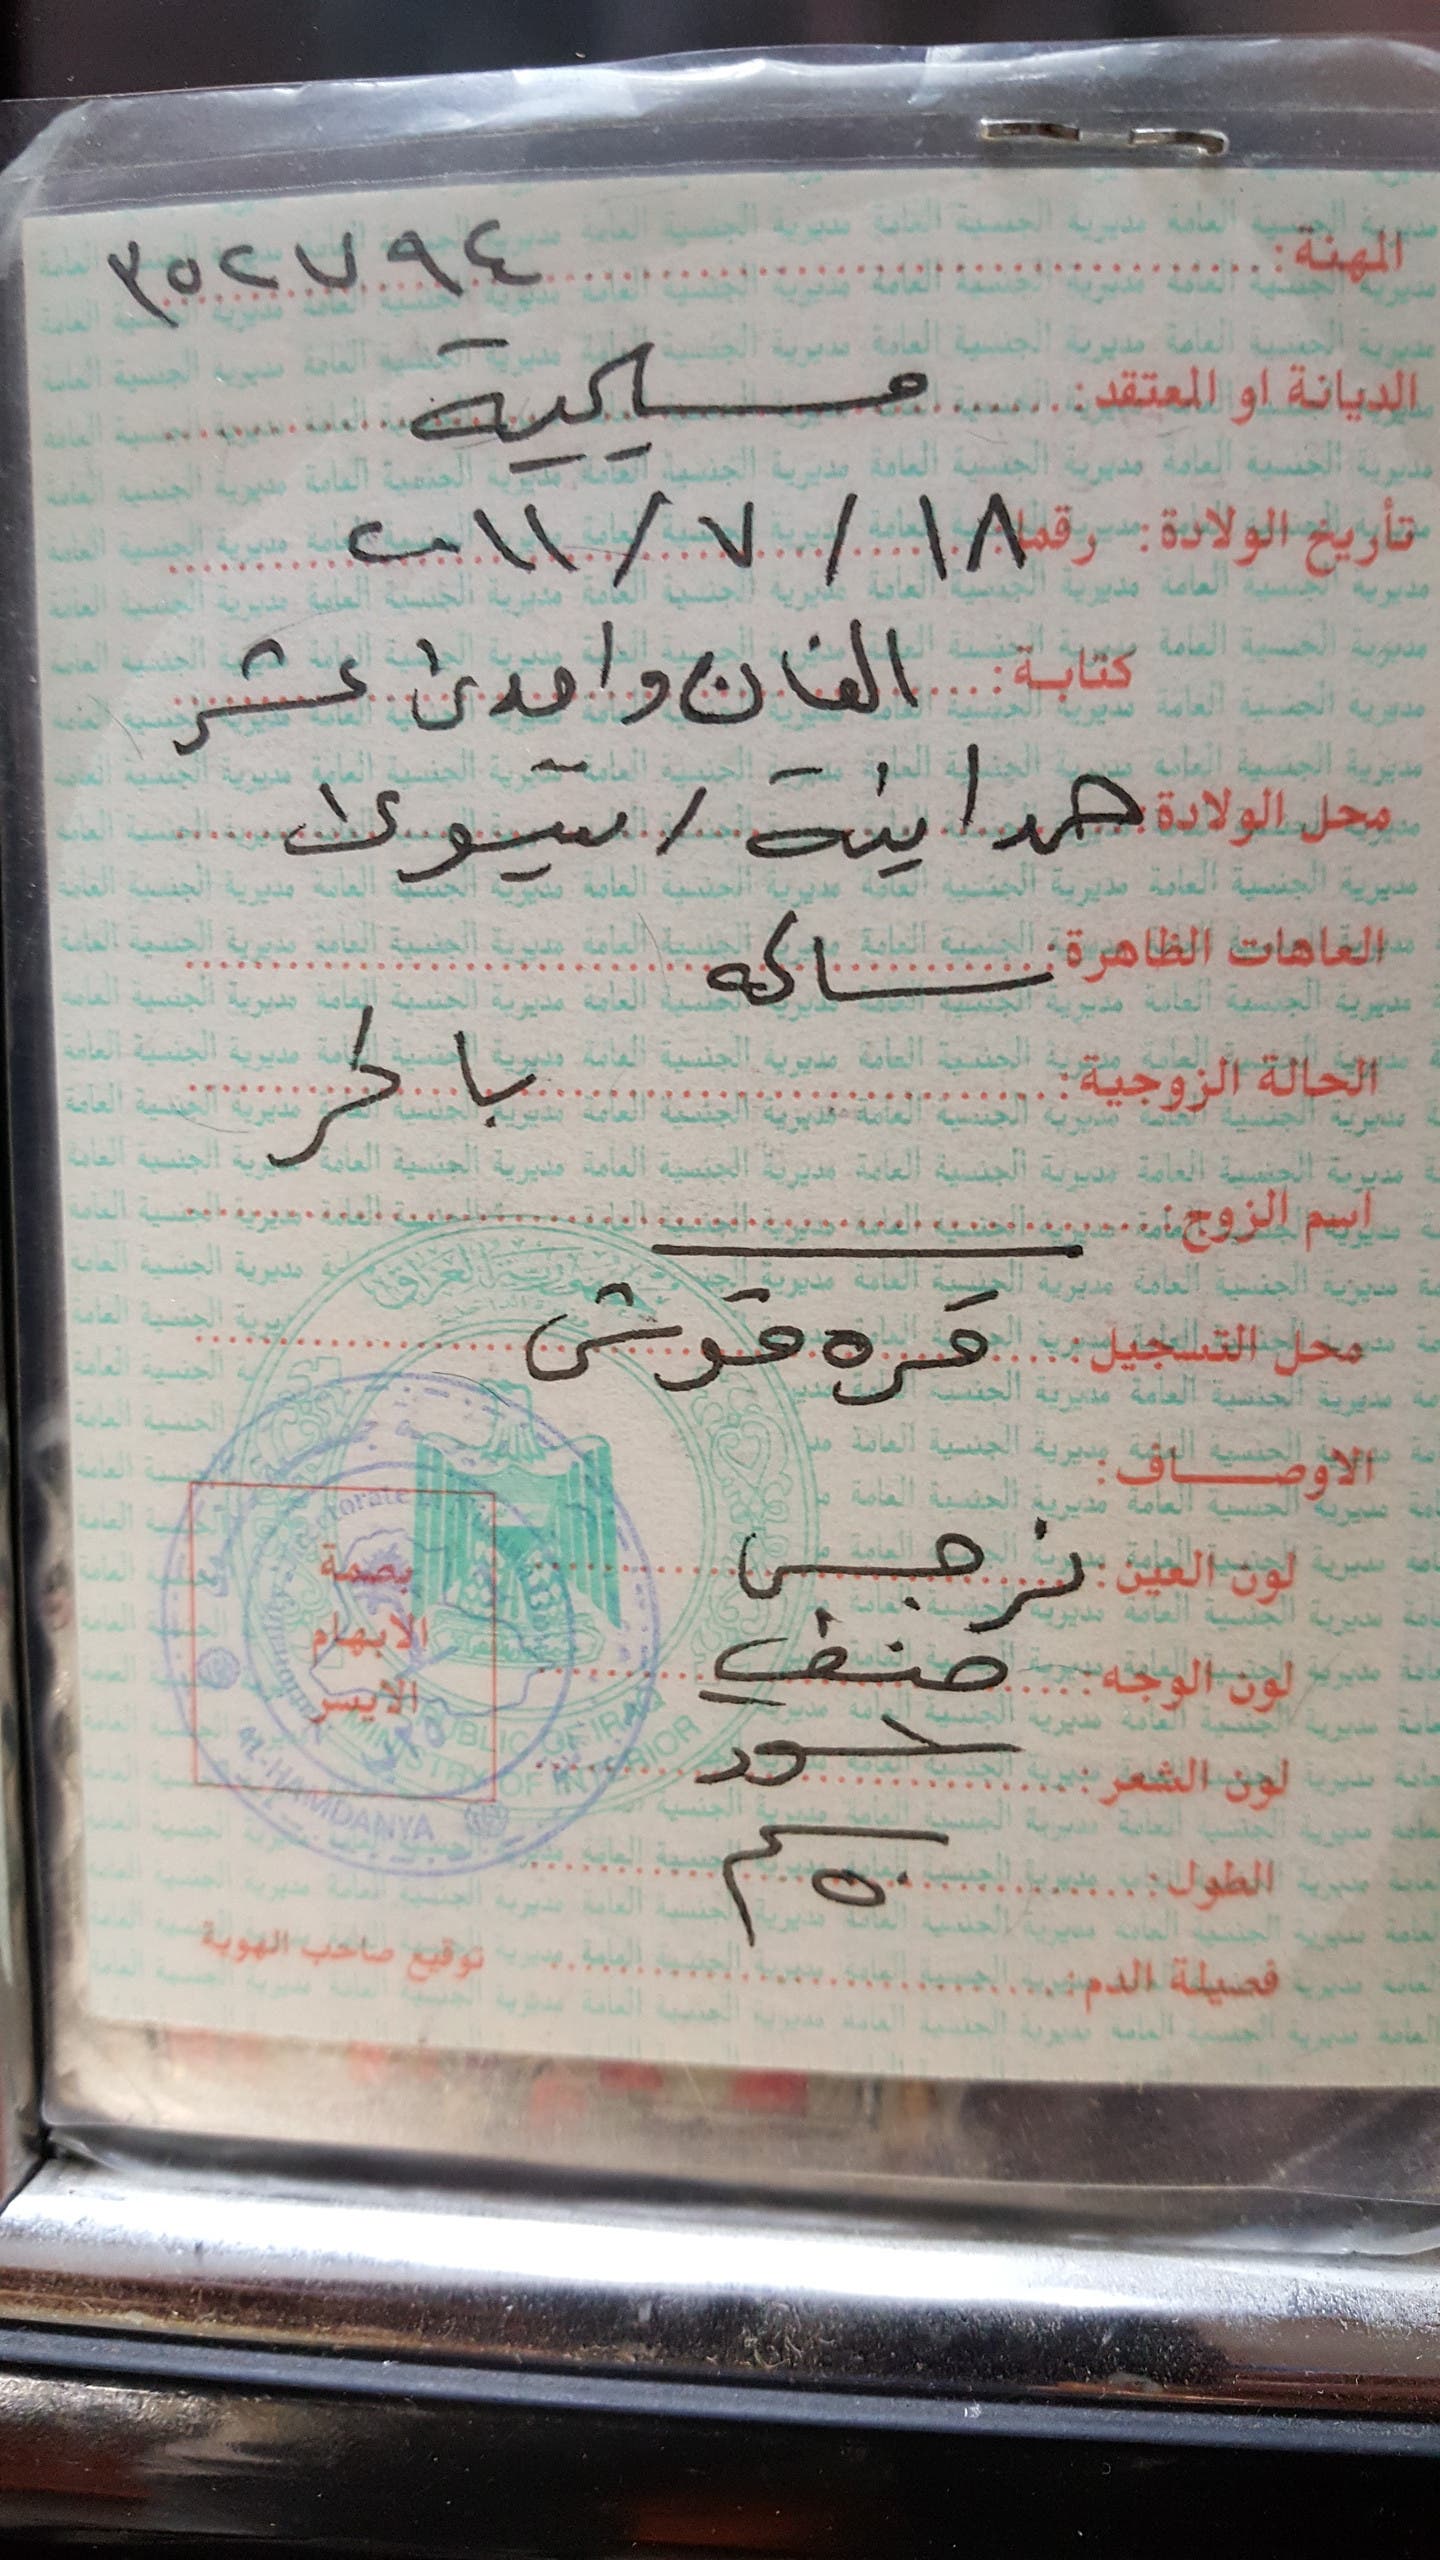 المهنة: ٣٥٢٧٩٤
الديانة او المعتقد: مسيحية
تأريخ الولادة: رقما ١٨ / ٧ / ٢٠١١
كتابة: الفان واحدى عشر
محل الولادة: حمدانية / نينوى
العاهات الظاهرة: سالمه
الحالة الزوجية: باكر
اسم الزوج:
محل التسجيل: قره قوش
الاوصاف:
لون العين: نرجسي
لون الوجه: حنطي
لون الشعر: اسود
الطول: ٥٠ سم
فصيلة الدم:
توقيع صاحب الهوية
بصمة
الابهام
الايسر
REPUBLIC OF IRAQ
MINISTRY OF INTERIOR
AL-HAMDANYA
مديرية الجنسية العامة